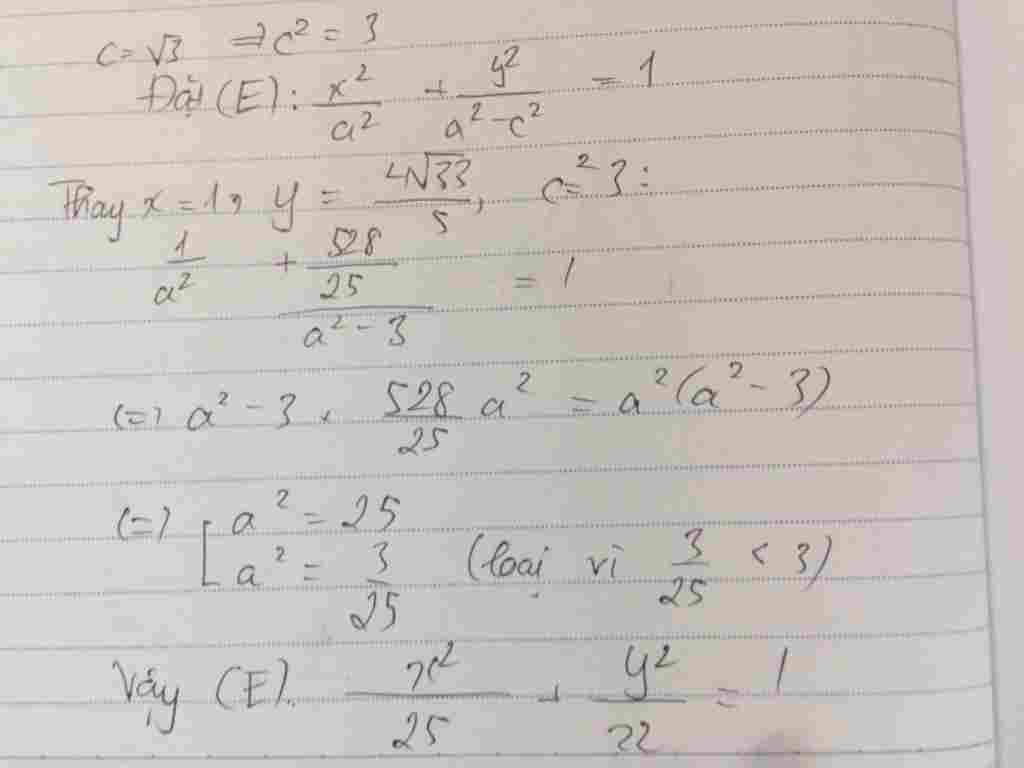 c = √3 ⇒ c² = 3
Đặt (E): x²/a² + y²/(a² - c²) = 1
Thay x = 1, y = 4√33/5, c² = 3:
1/a² + (528/25)/(a² - 3) = 1
(=) a² - 3 + 528/25 a² = a²(a² - 3)
(=) [ a² = 25
a² = 3/25 (loại vì 3/25 < 3)
Vậy (E). x²/25 + y²/22 = 1